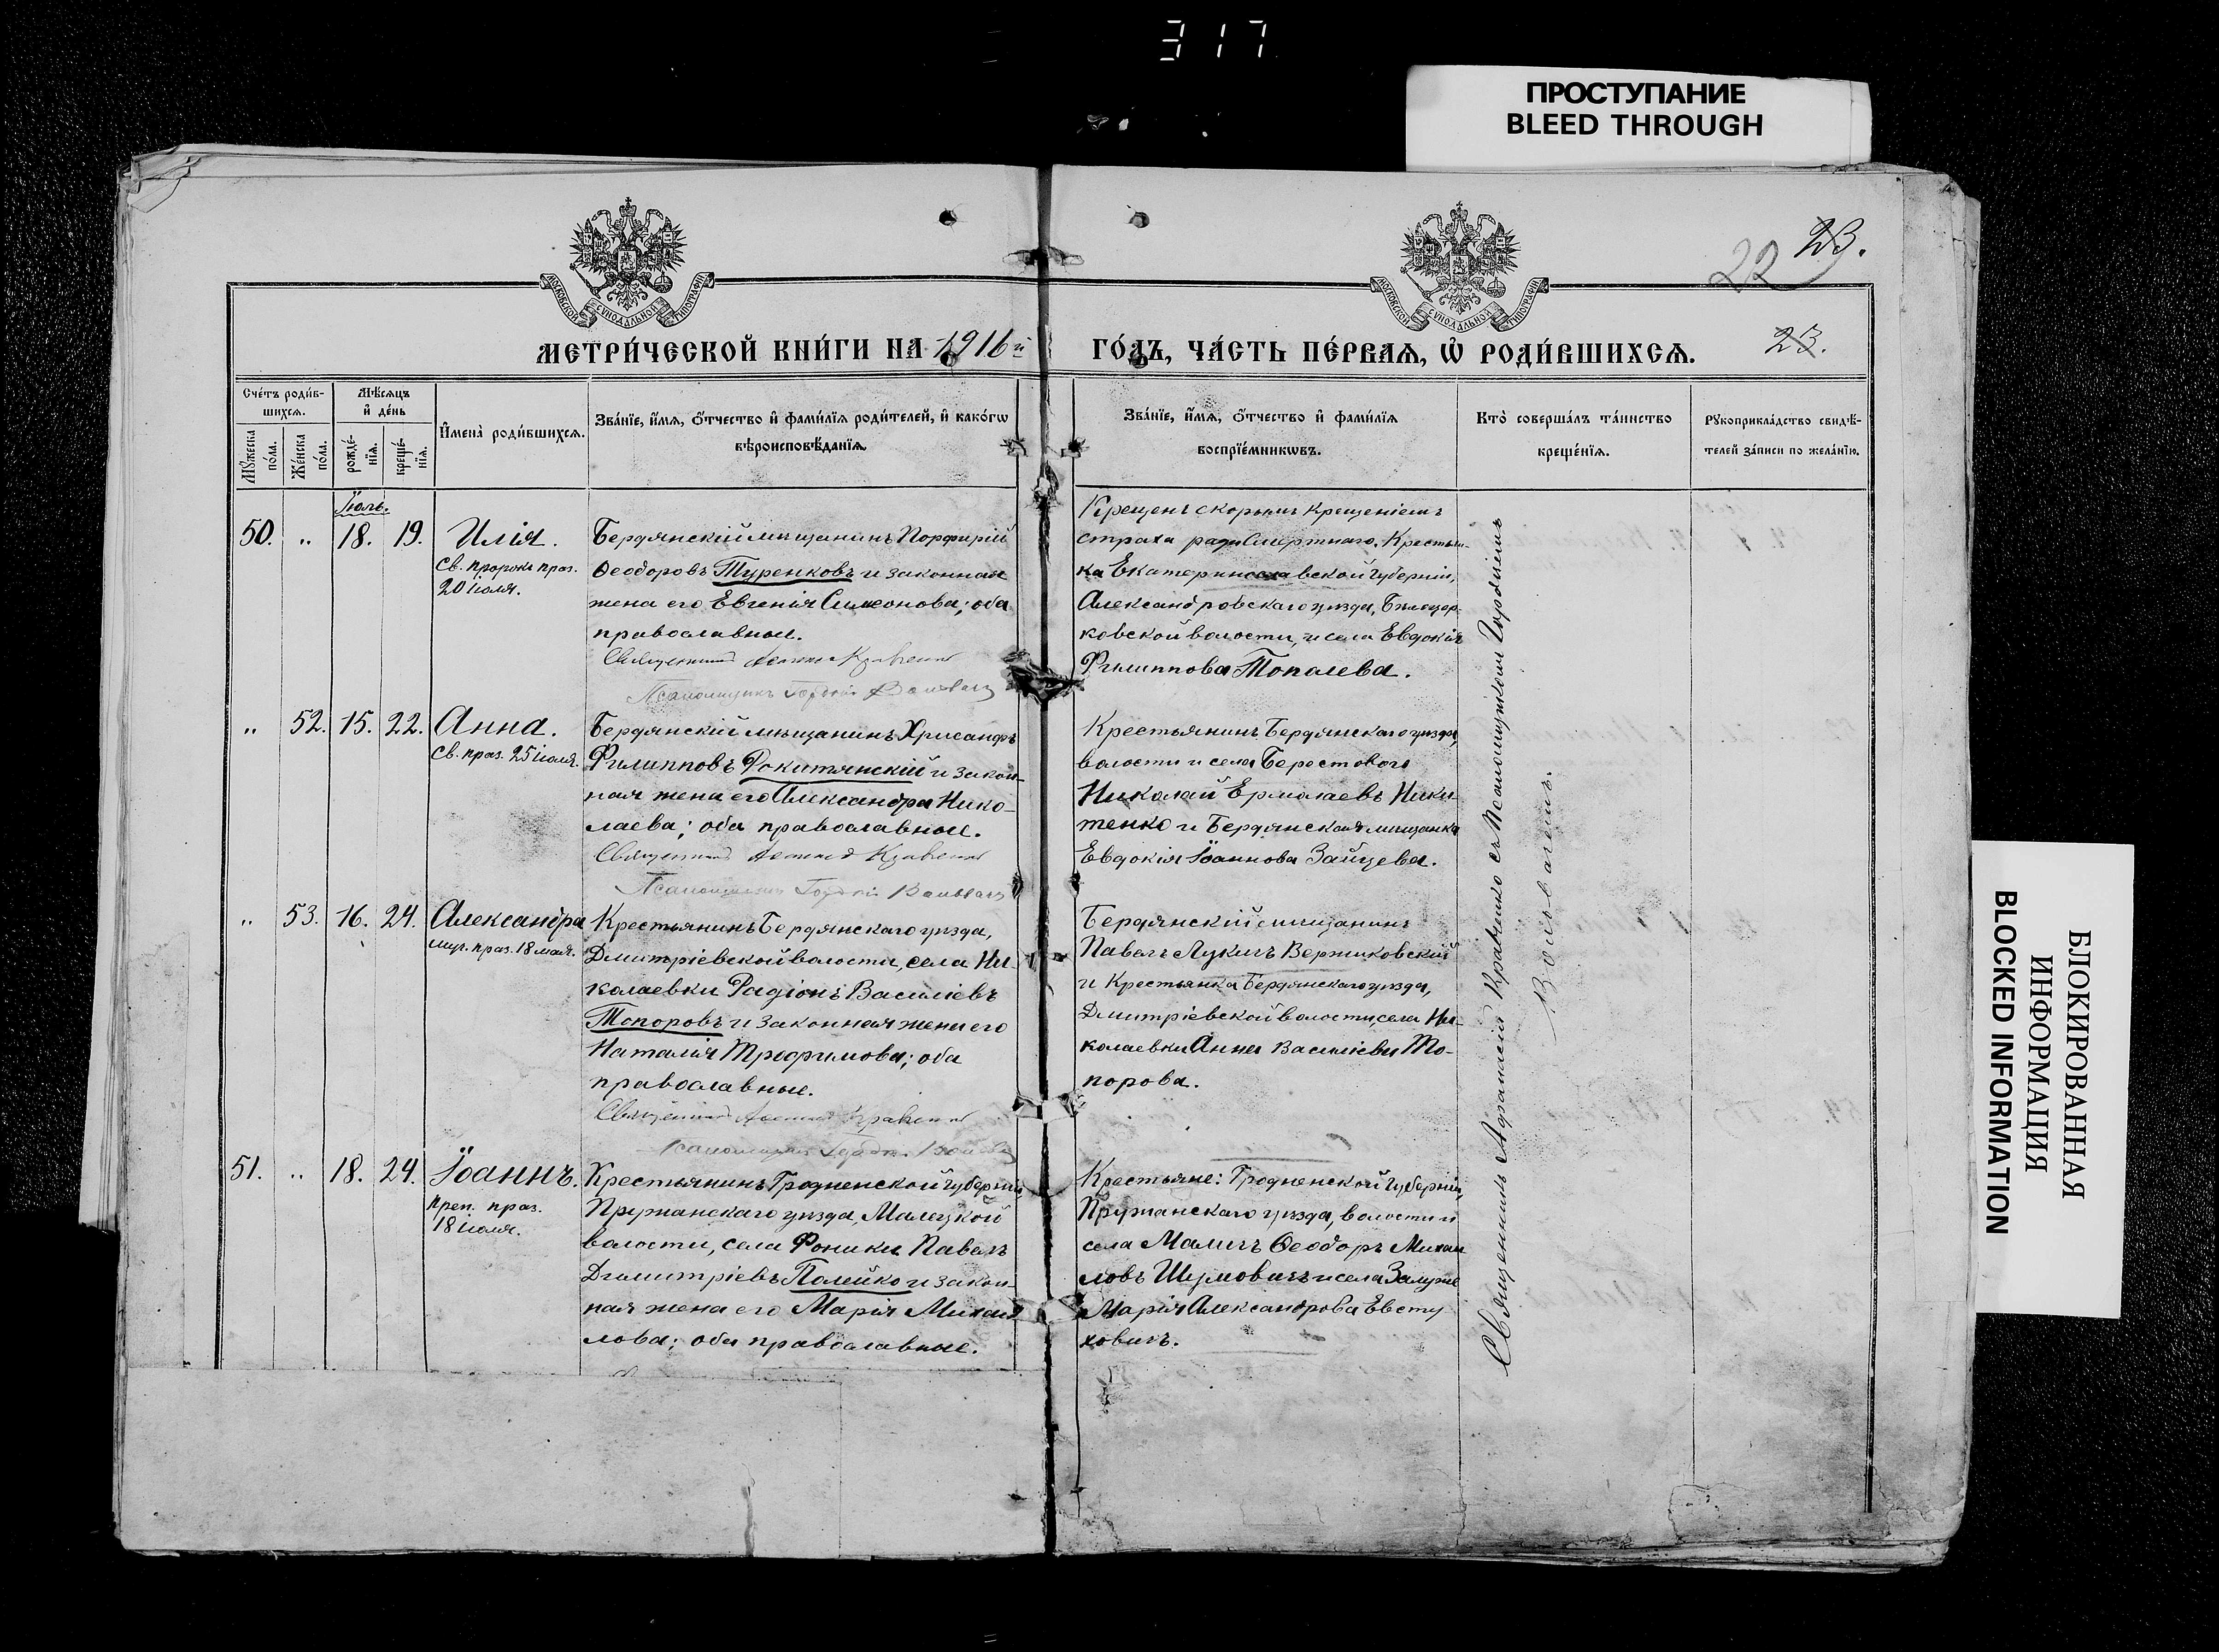 317
ПРОСТУПАНИЕ
BLEED THROUGH
МОСКОВСКОЙ СѴНОДАЛЬНОЙ ТИПОГРАФІИ
МОСКОВСКОЙ СѴНОДАЛЬНОЙ ТИПОГРАФІИ
22 23.
МЕТРИ́ЧЕСКОЙ КНИ́ГИ НА 1916й ГО́ДЪ, ЧА́СТЬ ПЕ́РВАѦ, Ѡ҆ РОДИ́ВШИХСѦ.
23.
Сче́тъ роди́в-
шихсѧ.
Мѣ́сѧцъ
и҆ де́нь
И҆мена̀ роди́вшихсѧ.
Зва́нїе, и҆́мѧ, ѻ҆́тчество и҆ фами́лїѧ роди́телей, и҆ како́гѡ
вѣроисповѣ́данїѧ.
Зва́нїе, и҆́мѧ, ѻ҆́тчество и҆ фами́лїѧ
воспрїе́мникѡвъ.
Кто̀ соверша́лъ та́инство
креще́нїѧ.
Рꙋкоприкла́дство свидѣ́-
телей за́писи по жела́нїю.
Мꙋ́жеска
по́ла.
Же́нска
по́ла.
рожде́-
нїѧ.
креще́-
нїѧ.
Іюль.
50. „ 18. 19. Илія.
св. пророка праз.
20 іюля.
Бердянскій мѣщанинъ Порфирій
Ѳеодоровъ Туренковъ и законная
жена его Евгенія Симеонова; оба
православные.
Священникъ Кравченко
Псаломщикъ Гордій
Крещенъ скорымъ крещеніемъ
страха ради смертнаго. Крестьян-
ка Екатеринославской губерніи,
Александровскаго уѣзда, Бѣлоцер-
ковской волости, и села Евдокія
Филиппова Топалева.
„ 52. 15. 22. Анна.
св. праз. 25 іюля.
Бердянскій мѣщанинъ Хрисанфъ
Филипповъ Рокитянскій и закон-
ная жена его Александра Нико-
лаева; оба православные.
Священникъ Кравченко
Псаломщикъ Гордій
Крестьянинъ Бердянскаго уѣзда,
волости и села Берестового
Николай Ермолаевъ Ники-
тенко и Бердянская мѣщанка
Евдокія Іоаннова Зайцева.
„ 53. 16. 24. Александра
муч. праз. 18 мая.
Крестьянинъ Бердянскаго уѣзда,
Дмитріевской волости, села Ни-
колаевки Радіонъ Василіевъ
Топоровъ и законная жена его
Наталія Трофимова; оба
православные.
Священникъ Кравченко
Псаломщикъ Гордій
Бердянскій мѣщанинъ
Павелъ Лукичъ Вержиковскій
и Крестьянка Бердянскаго уѣзда,
Дмитріевской волости, села Ни-
колаевки Анна Василіева То-
порова.
51. „ 18. 24. Іоаннъ.
преп. праз.
18 іюля.
Крестьянинъ Гродненской губерніи,
Пружанскаго уѣзда, Малечской
волости, села Фоники Павелъ
Димитріевъ Полейко и закон-
ная жена его Марія Михаи
лова; оба православные.
Крестьяне: Гродненской губерніи,
Пружанскаго уѣзда, волости и
села Малечъ Ѳеодоръ Михаи
ловъ Шумовичъ и села Залужье
Марія Александрова Евсту
ховичъ.
Священникъ Кравченко съ Псаломщикомъ Гордіемъ
БЛОКИРОВАННАЯ
ИНФОРМАЦИЯ
BLOCKED INFORMATION